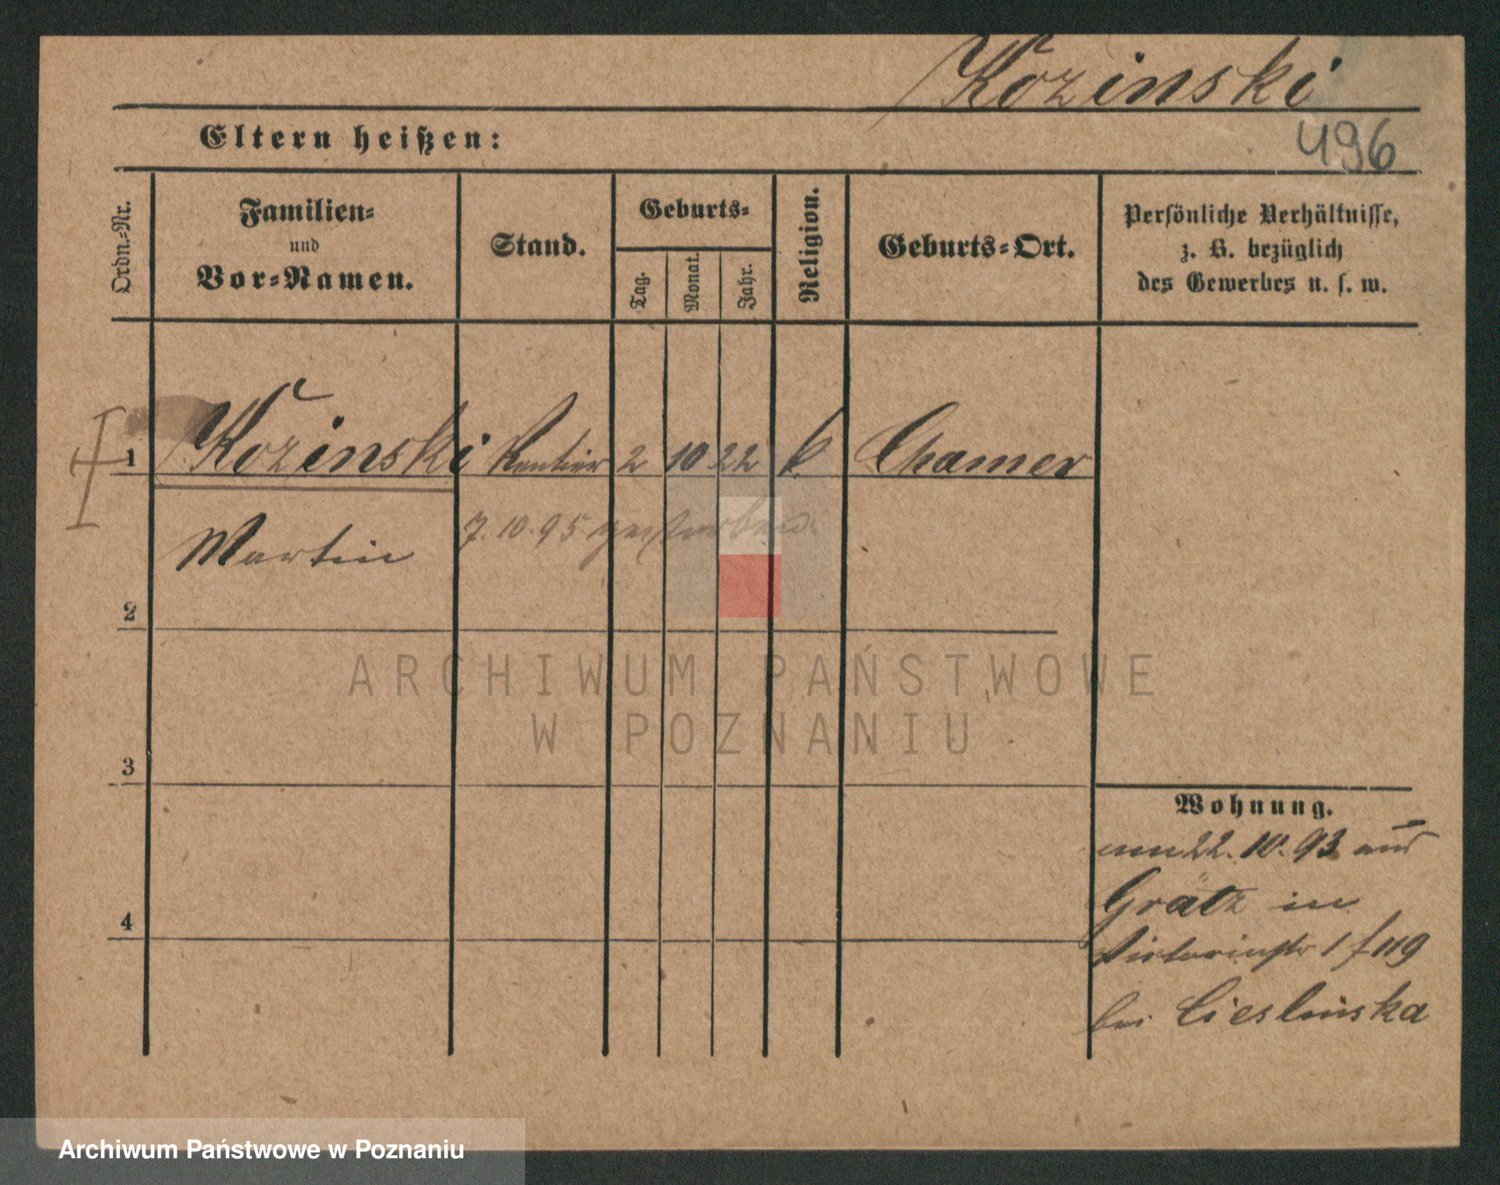 Kozinski
Eltern heißen:
496
Ordn.-Nr.
Familien-
und
Vor-Namen.
Stand.
Geburts-
Tag.
Monat.
Jahr.
Religion.
Geburts-Ort.
Persönliche Verhältnisse,
z. B. bezüglich
des Gewerbes u. s. w.
1 Kozinski Rentier 2 10 22 k Chamer
Martin 7.10.95 gestorben.
2
ARCHIWUM PAŃSTWOWE
W POZNANIU
3
Wohnung.
22.10.93 aus
Grätz in
Victoriastr 1 f 119
4
bei Cieslinska
Archiwum Państwowe w Poznaniu